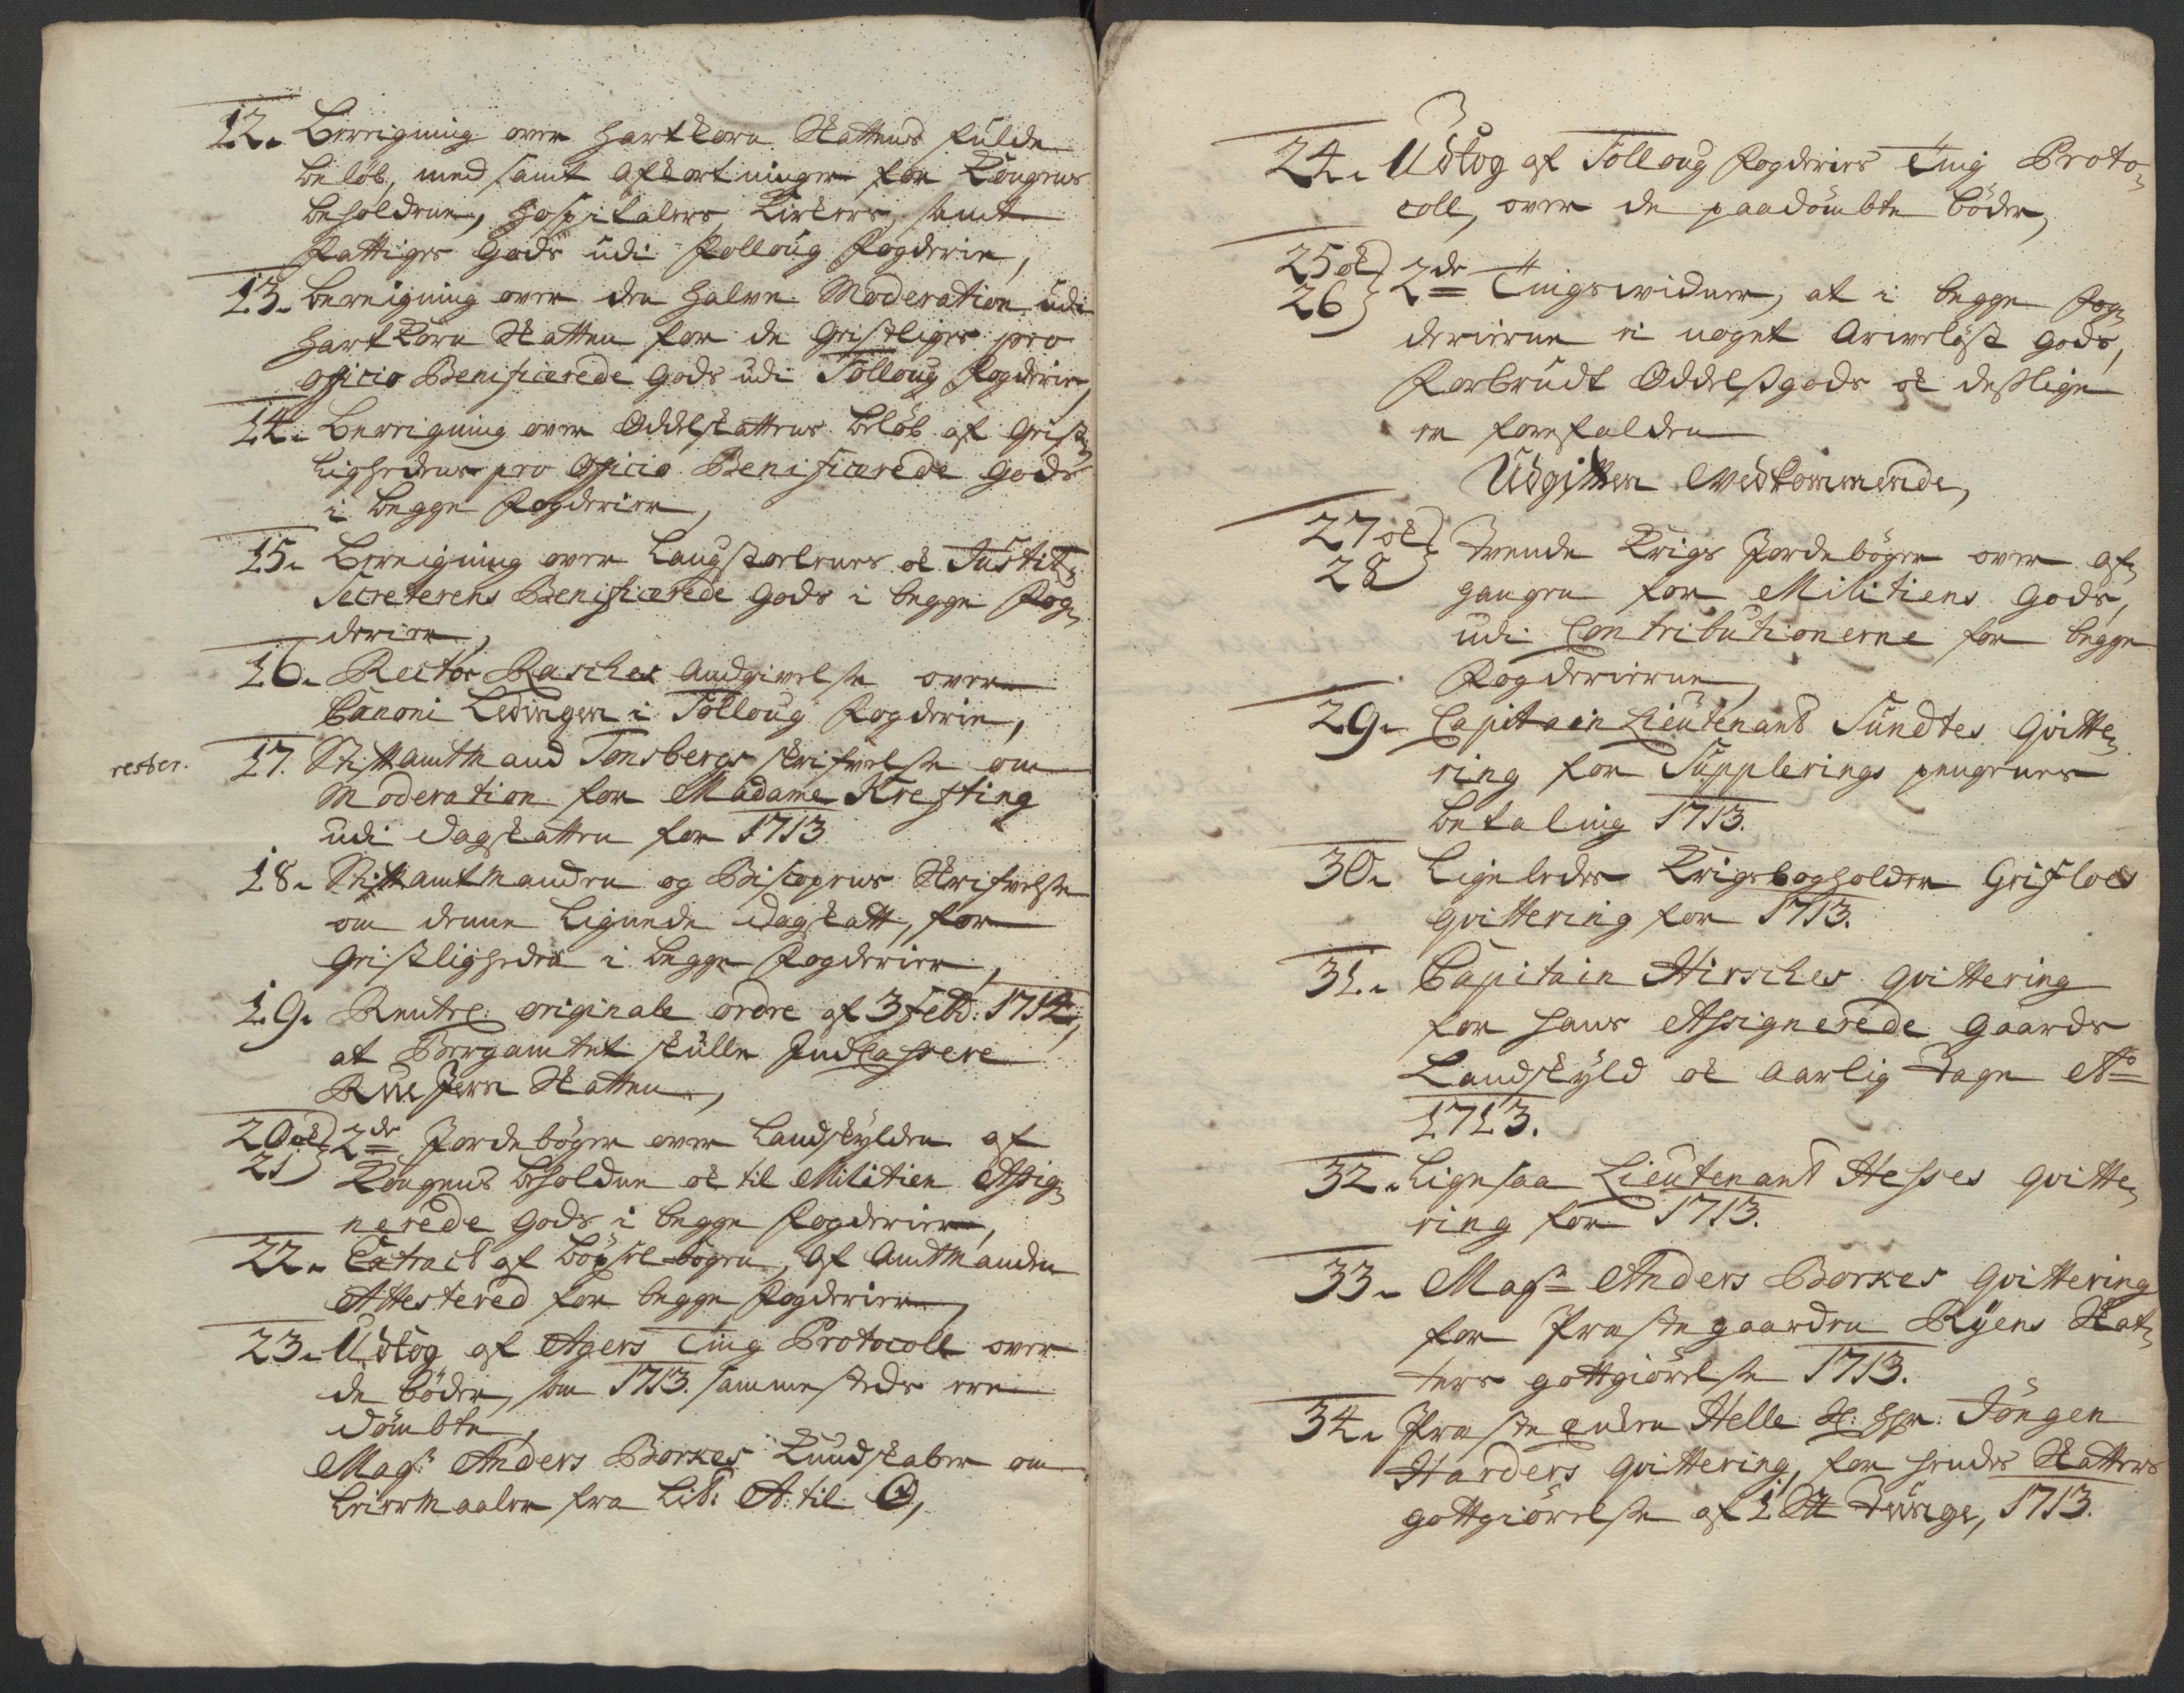 12. Beregning over Hartkorn Skattens fulde
beløb, med samt afkortninger for Kongens
beholdene, Hospitalers, Kirkers, samt
Fattiges Gods udi Folloug Fogderie,
13. Beregning over den halve Moderation udi
Hartkorn Skatten for de Geistliges pro
officio Beneficerede Gods udi Folloug Fogderie,
14. Beregning over Oddelskattens beløb af Geist-
lighedens pro Officio Beneficerede Gods
i begge Fogderier,
15. Beregning over Laugstolens ok Justits
Secreterens Beneficerede Gods i begge Fog-
derier,
16. Rector Rasches Andgivelse over
Canoni Ledingen i Folloug Fogderie,
rester. 17. Stiftamtmand Tonsbergs skrifvelse om
Moderation for Madame Krefting
udi dagskatten for 1713
18. Stiftamtmanden og Biscopens Skrifvelse
om denne lignede dagskatt, for
Geistligheden i begge Fogderier,
19. Rentre originale ordre af 3 Febr: 1714,
at Bergamtet skulle Indcassere
Rue Jern Skatten,
20 ok 2de Jordebøger over Landskylden af
21 Kongens beholdne ok til Militien Assig-
nerede Gods i begge Fogderier,
22. Extract af Bøxelbogen, af Amtmanden
Attestered for begge Fogderier,
23. Udtog af Agers Ting Protocoll over
de bøder, som 1713. sammesteds ere
dømbte,
Magr Anders Borkes Kundskaber om
Leiermaaler fra Lit: A: til O,
24. Udtog af Folloug Fogderies Ting Proto-
coll, over de paadømbte bøder,
25 ok 2de Tingsvidner, at i begge Fog-
26 derierne ei noget Arveløst Gods,
Forbrudt Oddelsgods ok deslige
er forefalden
Udgiften Vedkommende,
27 ok Tvende Krigs Jordebøger over af-
28 gangen for Militiens Gods,
udi Contributionerne for begge
Fogderierne,
29. Capitain Lieutenant Sundtes Qvitte-
ring for Supplerings pengenes
betaling 1713.
30. Ligeledes Krigsbogholder Grifloes
qvittering for 1713.
31. Capitain Hirsches qvittering
for hans Assignerede Gaards
Landskyld ok Aarlig Tage Ao
1713.
32. Ligesaa Lieutenant Hesses qvitte-
ring for 1713.
33. Magr Anders Borkes Qvittering
for Præstegaarden Ryens Skat-
ters gottgiørelse 1713.
34. Præsteenken Helle Sl: Hr: Jørgen
Harders qvittering, for hendes Skatters
gottgiørelse af 1 Tunge, 1713.